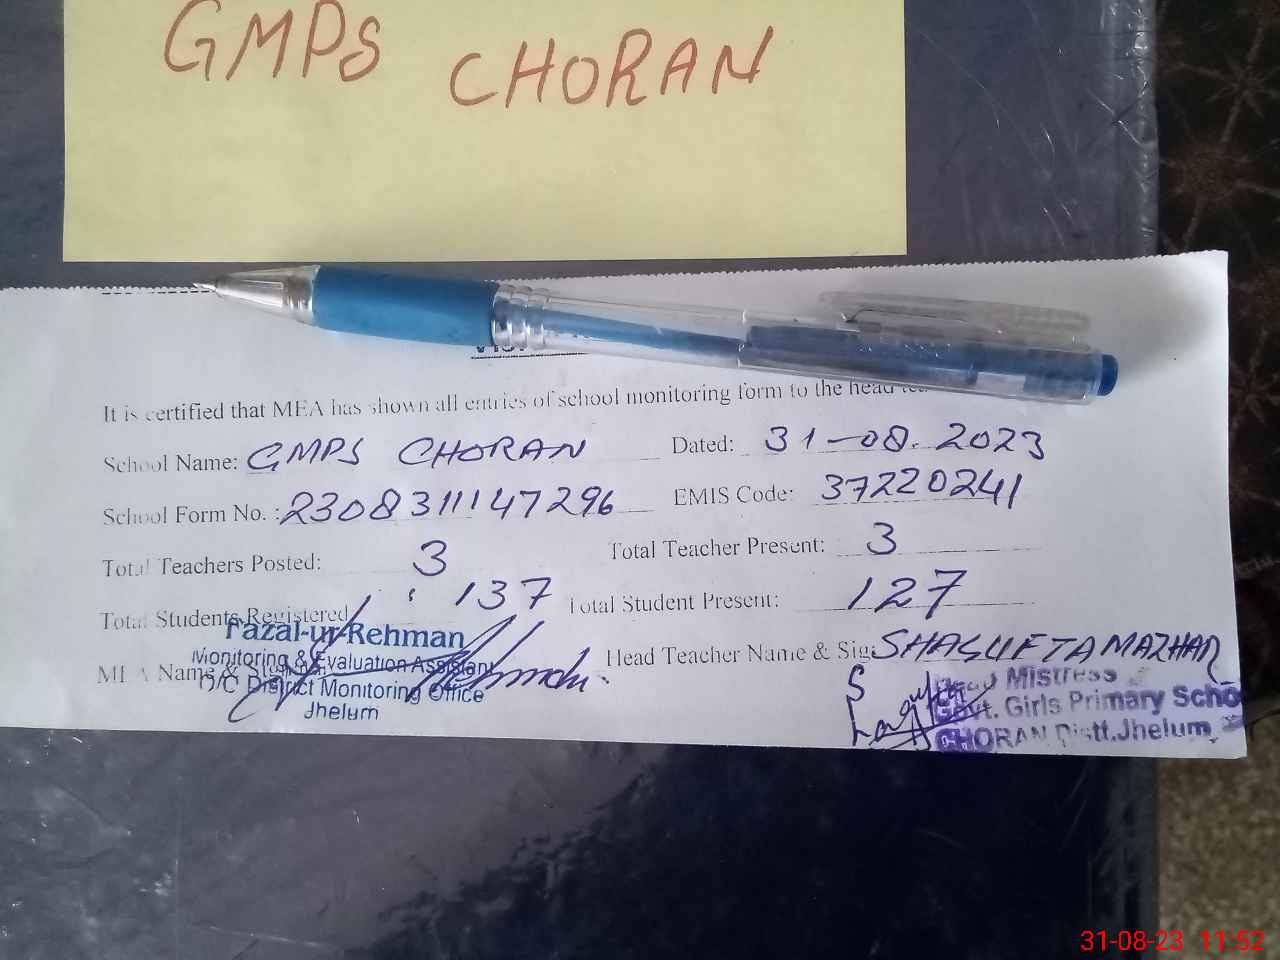 GMPS CHORAN
It is certified that MEA has shown all entries of school monitoring form to the head
School Name: GMPS CHORAN Dated: 31-08.2023
School Form No. : 2308311147296 EMIS Code: 37220241
Total Teachers Posted: 3 Total Teacher Present: 3
Total Students Registered 137 Total Student Present: 127
Fazal-ur-Rehman
MEA Name & Head Teacher Name & Sig: SHAGUFTA MAZHAR
Monitoring & Evaluation Assistant
O/C District Monitoring Office
Jhelum
Head Mistress
Govt. Girls Primary Schoo
CHORAN Distt.Jhelum
31-08-23 11:52